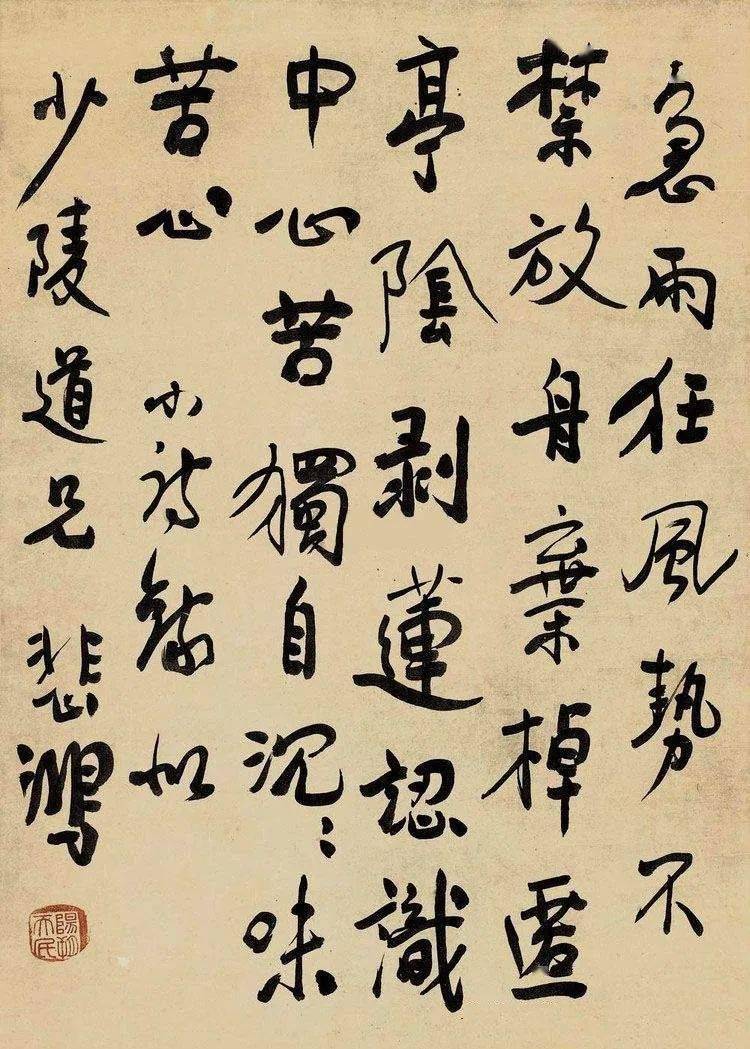 急雨狂風勢不
禁放舟棄棹匿
亭陰剥蓮認識
中心苦獨自沉〻味
苦心 小詩錄似
少陵道兄 悲鴻
陽朔
天民